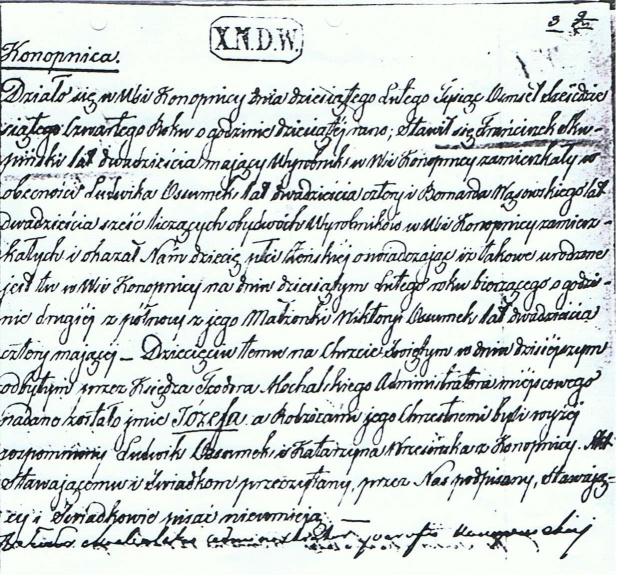 X.N.D.W.
3
Konopnica.
Działo się w Wsi Konopnicy dnia dziesiątego Lutego Tysiąc Ośmset Sześćdzie-
siątego Czwartego Roku o godzinie dziesiątej rano; Stawił się Franciszek
lat dwadzieścia mający Wyrobnik w Wsi Konopnicy zamieszkały w
obecności Ludwika Osumek lat dwadzieścia cztery i Bernarda Wąsowskiego lat
dwadzieścia sześć liczących obydwóch Wyrobników w Wsi Konopnicy zamiesz-
kałych i okazał Nam dziecię płci żeńskiej oświadczając iż takowe urodzone
jest tu w Wsi Konopnicy na dniu dziesiątym Lutego roku bieżącego o godzi-
nie drugiej z północy z jego Małżonki Wiktoryi Osumek lat dwadzieścia
cztery mającej – Dziecięciu temu na Chrzcie Świętym w dniu dzisiejszym
odbytym przez Księdza Teodora Mochalskiego Administratora miejscowego
nadane zostało imie Józefa a Rodzicami jego Chrzestnemi byli wyżej
wspomniony Ludwik Osumek i Katarzyna z Konopnicy. Akt
Stawającemu i Świadkom przeczytany, przez Nas podpisany, Stawają-
cy i Świadkowie pisać nieumieją –